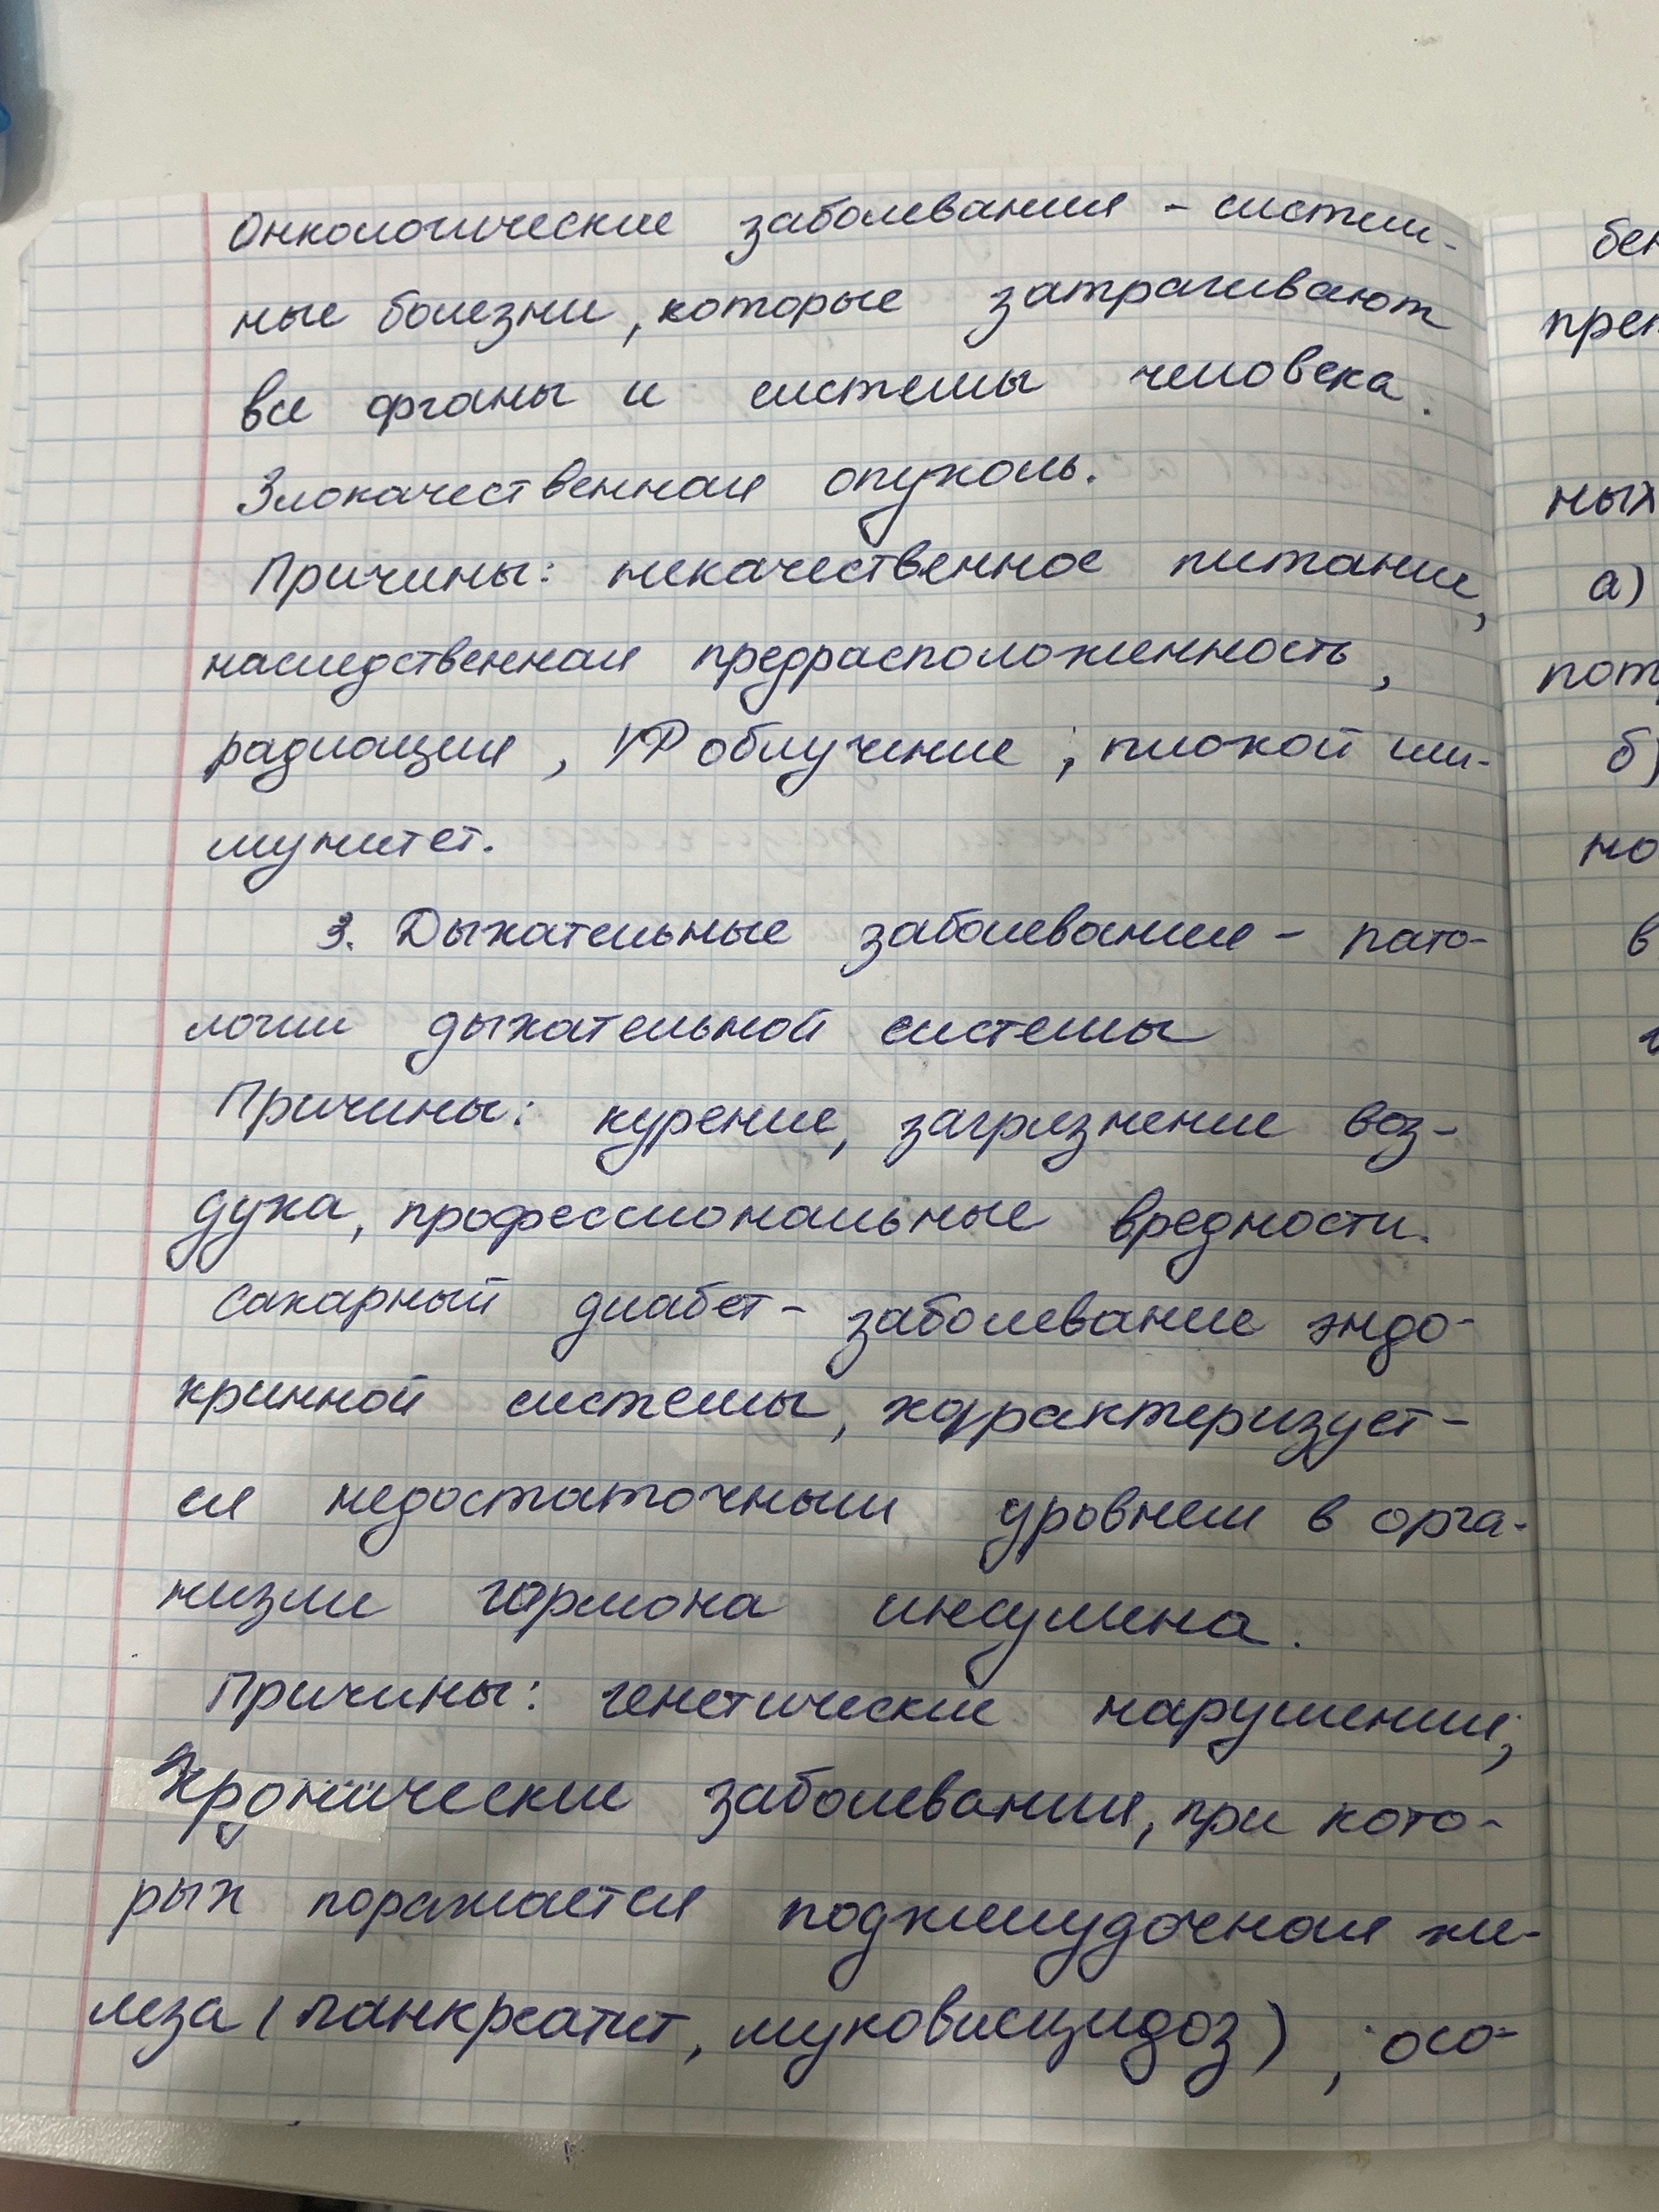 Онкологические заболевания - систем-
ные болезни, которые затрагивают
все органы и системы человека.
Злокачественная опухоль.
Причины: некачественное питание,
наследственная предрасположенность,
радиация, УФ облучение; плохой им-
мунитет.
3. Дыхательные заболевания - пато-
логии дыхательной системы
Причины: курение, загрязнение воз-
духа, профессиональные вредности.
Сахарный диабет - заболевание эндо-
кринной системы, характеризует-
ся недостаточным уровнем в орга-
низме гормона инсулина.
Причины: генетические нарушения;
Хронические заболевания, при кото-
рых поражается поджелудочная же-
леза (панкреатит, муковисцидоз), осо-
бен
преп
ных
а)
пот
б)
но
в